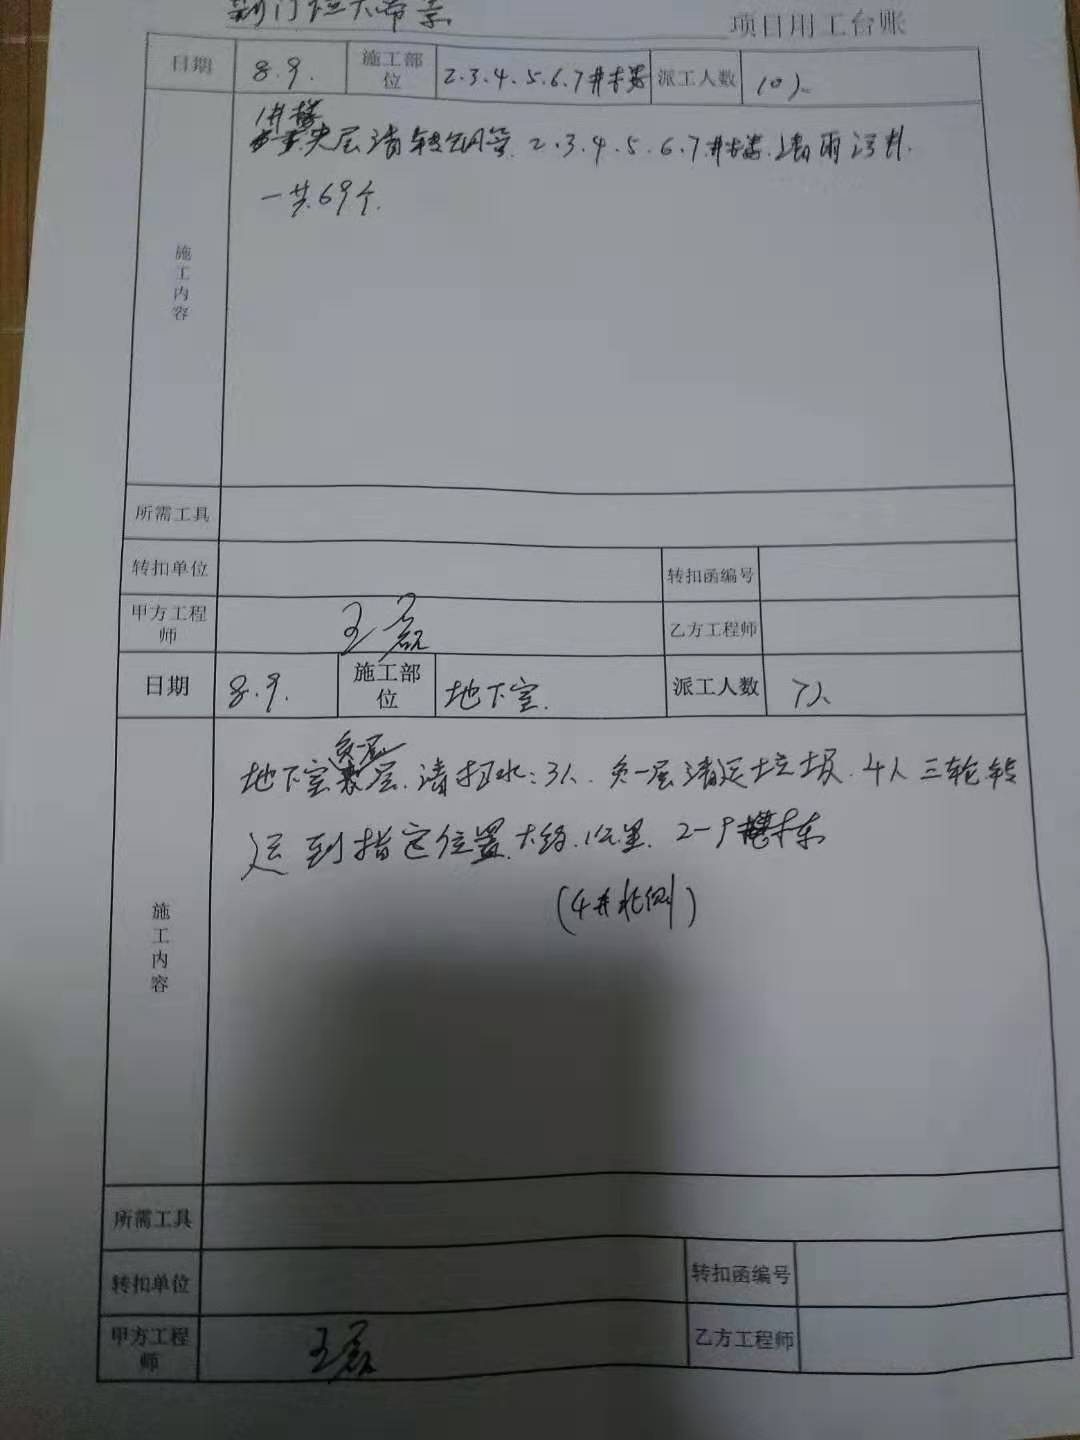 荆门恒大帝景 项目用工台账
日期 8.9. 施工部位 2.3.4.5.6.7#楼 派工人数 10人
1#楼
夹层清转钢管. 2.3.4.5.6.7#楼.清雨污井.
一共69个.
施工内容
所需工具
转扣单位 转扣函编号
甲方工程师 王磊 乙方工程师
日期 8.9. 施工部位 地下室. 派工人数 7人
负一层
地下室层.清扫水:3人.负一层清运垃圾.4人三轮转
运到指定位置.大约.1公里. 2-9栋
(4#北侧)
施工内容
所需工具
转扣单位 转扣函编号
甲方工程师 王磊 乙方工程师